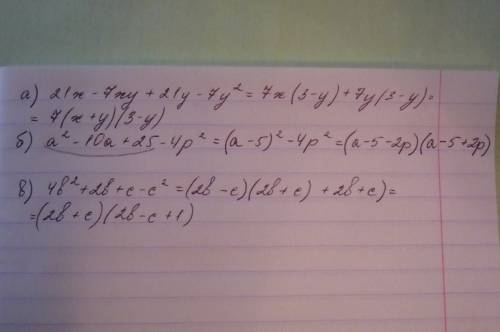 а) 21x - 7xy + 21y - 7y² = 7x(3-y) + 7y(3-y) =
= 7(x+y)(3-y)
б) a² - 10a + 25 - 4p² = (a-5)² - 4p² = (a-5-2p)(a-5+2p)
в) 4b² + 2b + c - c² = (2b-c)(2b+c) + 2b+c) =
= (2b+c)(2b-c+1)